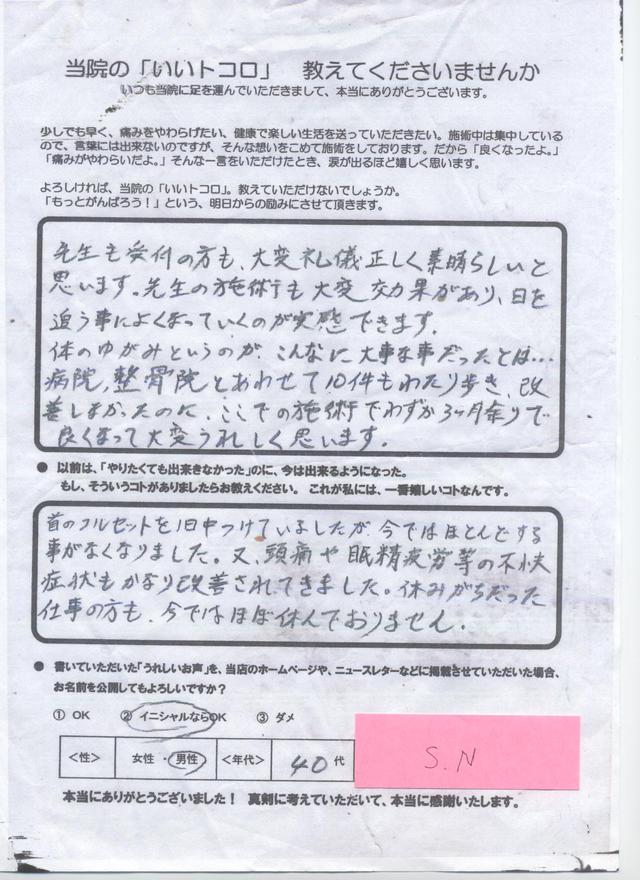 当院の「いいトコロ」 教えてくださいませんか
いつも当院に足を運んでいただきまして、本当にありがとうございます。
少しでも早く、痛みをやわらげたい、健康で楽しい生活を送っていただきたい。施術中は集中している
ので、言葉には出来ないのですが、そんな想いをこめて施術をしております。だから「良くなったよ。」
「痛みがやわらいだよ。」そんな一言をいただけたとき、涙が出るほど嬉しく思います。
よろしければ、当院の「いいトコロ」。教えていただけないでしょうか。
「もっとがんばろう！」という、明日からの励みにさせて頂きます。
先生も受付の方も、大変礼儀正しく素晴らしいと
思います。先生の施術も大変効果があり、日を
追う事によくなっていくのが実感できます。
体のゆがみというのが、こんなに大事な事だったとは…
病院、整骨院とあわせて10件もわたり歩き、改
善しなかったのに、ここでの施術でわずか3ヶ月余りで
良くなって大変うれしく思います。
● 以前は、「やりたくても出来きなかった」のに、今は出来るようになった。
もし、そういうコトがありましたらお教えください。 これが私には、一番嬉しいコトなんです。
首のコルセットを1日中つけていましたが、今ではほとんどする
事がなくなりました。又、頭痛や眼精疲労等の不快
症状もかなり改善されてきました。休みがちだった
仕事の方も、今ではほぼ休んでおりません。
● 書いていただいた「うれしいお声」を、当店のホームページや、ニュースレターなどに掲載させていただいた場合、
お名前を公開してもよろしいですか？
① OK ② イニシャルならOK ③ ダメ
＜性＞ 女性 ・ 男性 ＜年代＞ 40 代 S.N
本当にありがとうございました！ 真剣に考えていただいて、本当に感謝いたします。